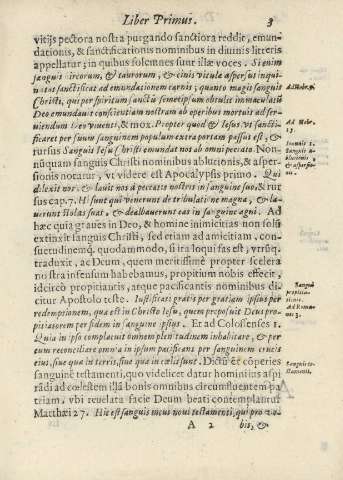 Liber Primus. 3
vitijs pectora nostra purgando sanctiora reddit, emun-
dationis, & sanctificationis nominibus in diuinis litteris
appellatur; in quibus solemnes sunt illæ voces. Si enim
sanguis circorum, & taurorum, & cinis vitulæ aspersus inqui-
natos sanctificat ad emundationem carnis, quanto magis sanguis
Christi, qui per spiritum sanctũ semetipsum obtulit immaculatũ
Deo emundauit conscientiam nostram ab operibus mortuis ad ser-
uiendum Deo viuenti, & mox. Propter quod & Iesus vt sancti-
ficaret per suum sanguinem populum extra portam passus est, &
rursus Sanguis Iesu Christi emundat nos ab omni peccato. Non-
nunquam sanguis Christi nominibus ablutionis, & asper-
sionis notatur, vt videre est Apocalypsis primo. Qui
dilexit nos. & lauit nos à peccatis nostris in sanguine suo, & rur
sus cap. 7. Hi sunt qui venerunt de tribulatione magna, & la-
uerunt stolas suas, & dealbauerunt eas in sanguine agni. Ad
hæc quia graues in Deo, & homine inimicitias non solũ
extinxit sanguis Christi, sed etiam ad amicitiam, con-
suetudinemq. quodammodo, si ita loqui fas est, vtrũq.
traduxit, ac Deum, quem meritissimè propter scelera
nostra infensum habebamus, propitium nobis effecit,
idcircò propitiantis, atque pacificantis nominibus di-
citur Apostolo teste. Iustificati gratis per gratiam ipsius per
redemptionem, quæ est in Christo Iesu, quem proposuit Deus pro-
pitiatorem per fidem in sanguine ipsius. Et ad Colossenses 1.
Quia in ipso complacuit omnem plenitudinem inhabitare, & per
eum reconciliare omnia in ipsum pacificans per sanguinem crucis
eius, siue quæ in terris, siue quæ in cælis sunt. Dictũ et cõperies
sanguinẽ testamenti, quo videlicet datur hominius aspi
rãdi ad cœlestem illã bonis omnibus circumfluentem pa
triam, vbi reuelata facie Deum beati contemplantur
Matthæi 27. Hic est sanguis meus noui testamenti, qui pro vo-
A 2 bis, &
Ad Hebr. 9.
Ad Hebr.
13.
Ioannis 1.
Sanguis ablutionis, &
aspersionis.
Sanguis
propitiationis.
Ad Roman
os 3.
Sanguis testamenti.